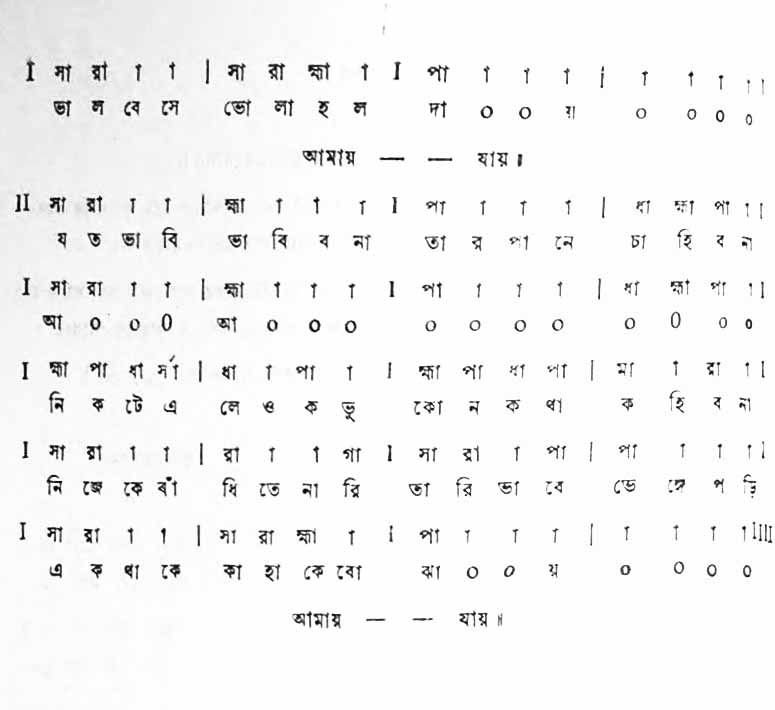 I সা রা া া | সা রা হ্মা া I পা া া া | া া া া I
ভা ল বে সে ভো লা হ ল দা ০ ০ য় ০ ০ ০ ০
আমায় — — যায়॥
II সা রা া া | হ্মা া া া I পা া া া | ধা হ্মা পা া I
য ত ভা বি ভা বি ব না তা র পা নে চা হি ব না
I সা রা া া | হ্মা া া া I পা া া া | ধা হ্মা পা া I
আ ০ ০ ০ আ ০ ০ ০ ০ ০ ০ ০ ০ ০ ০ ০
I হ্মা পা ধা র্সা | ধা া পা া I হ্মা পা ধা পা | মা া রা া I
নি ক টে এ লে ও ক ভু কো ন ক থা ক হি ব না
I সা রা া া | রা া া গা I সা রা া পা | পা া া া I
নি জে কে বাঁ ধি তে না রি তা রি ভা বে ভে ঙ্গে প ড়ি
I সা রা া া | সা রা হ্মা া I পা া া া | া া া া IIII
এ ক থা কে কা হা কে বো ঝা ০ ০ য় ০ ০ ০ ০
আমায় — — যায়॥